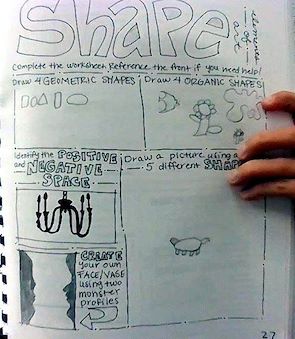 Shape
elements
of
art
Complete the worksheet. Reference the front if you need help!
Draw 4 GEOMETRIC SHAPES
Draw 4 ORGANIC SHAPES
Identify the POSITIVE
and NEGATIVE
SPACE
Draw a picture using
5 different
CREATE
your own
FACE/VASE
using two
monster
profiles
27